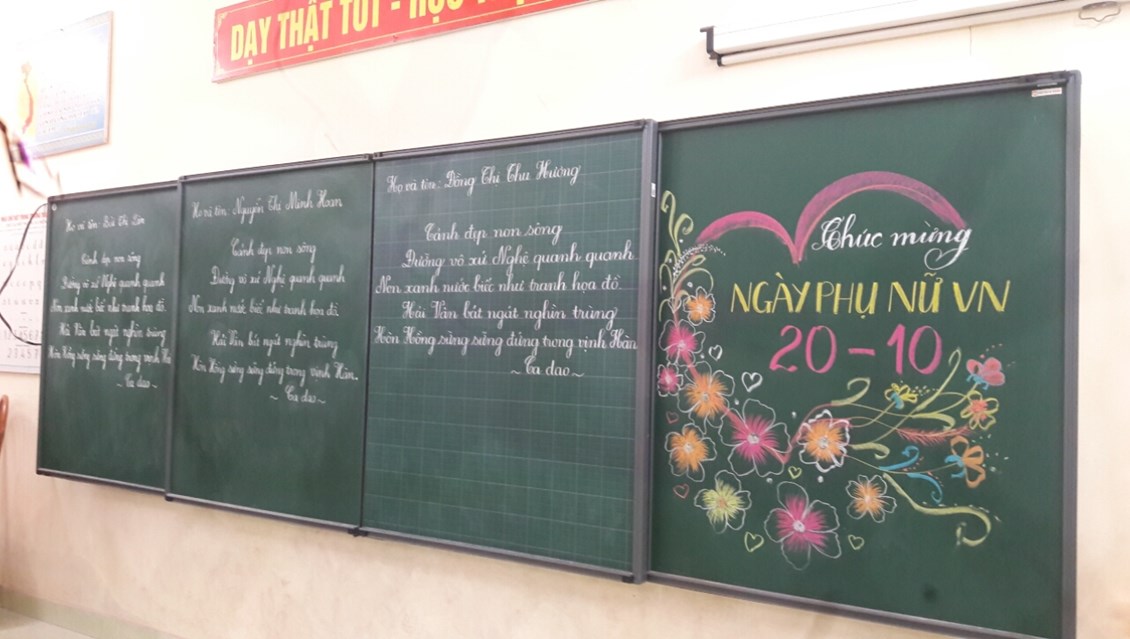 DẠY THẬT TỐT - HỌC
Họ và tên: Bùi Thị Lan
Cảnh đẹp non sông
Đường vô xứ Nghệ quanh quanh
Non xanh nước biếc như tranh họa đồ.
Hải Vân bát ngát nghìn trùng
Hòn Hồng sừng sững đứng trong vịnh Hàn
~ Ca dao ~
Họ và tên: Nguyễn Thị Minh Hoan
Cảnh đẹp non sông
Đường vô xứ Nghệ quanh quanh
Non xanh nước biếc như tranh họa đồ.
Hải Vân bát ngát nghìn trùng
Hòn Hồng sừng sững đứng trong vịnh Hàn.
~ Ca dao ~
Họ và tên: Đồng Thị Thu Hường
Cảnh đẹp non sông
Đường vô xứ Nghệ quanh quanh
Non xanh nước biếc như tranh họa đồ.
Hải Vân bát ngát nghìn trùng
Hòn Hồng sừng sững đứng trong vịnh Hàn
~ Ca dao ~
Chúc mừng
NGÀY PHỤ NỮ VN
20 - 10